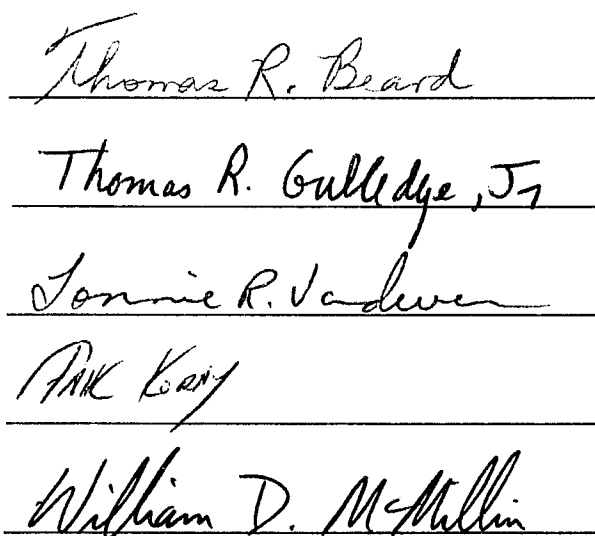 Thomas R. Beard
Thomas R. Gulledge, Jr
Lonnie R. Vandeveer
Faik Koray
William D. McMillin